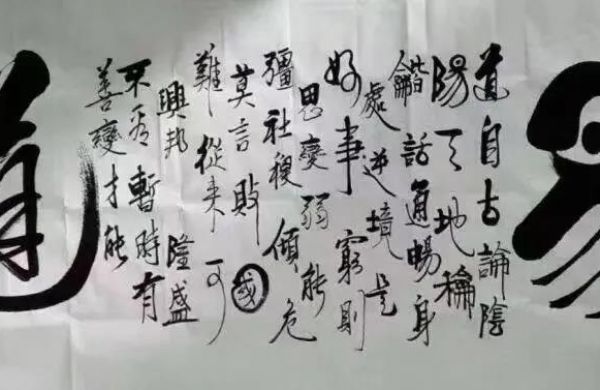 道自古論陰
陽天地稱
龤話通暢身
處逆境是
好事窮則
思變弱能
疆社稷傾危
莫言敗國
難從来可
興邦隆盛
不暫時有
善變才能